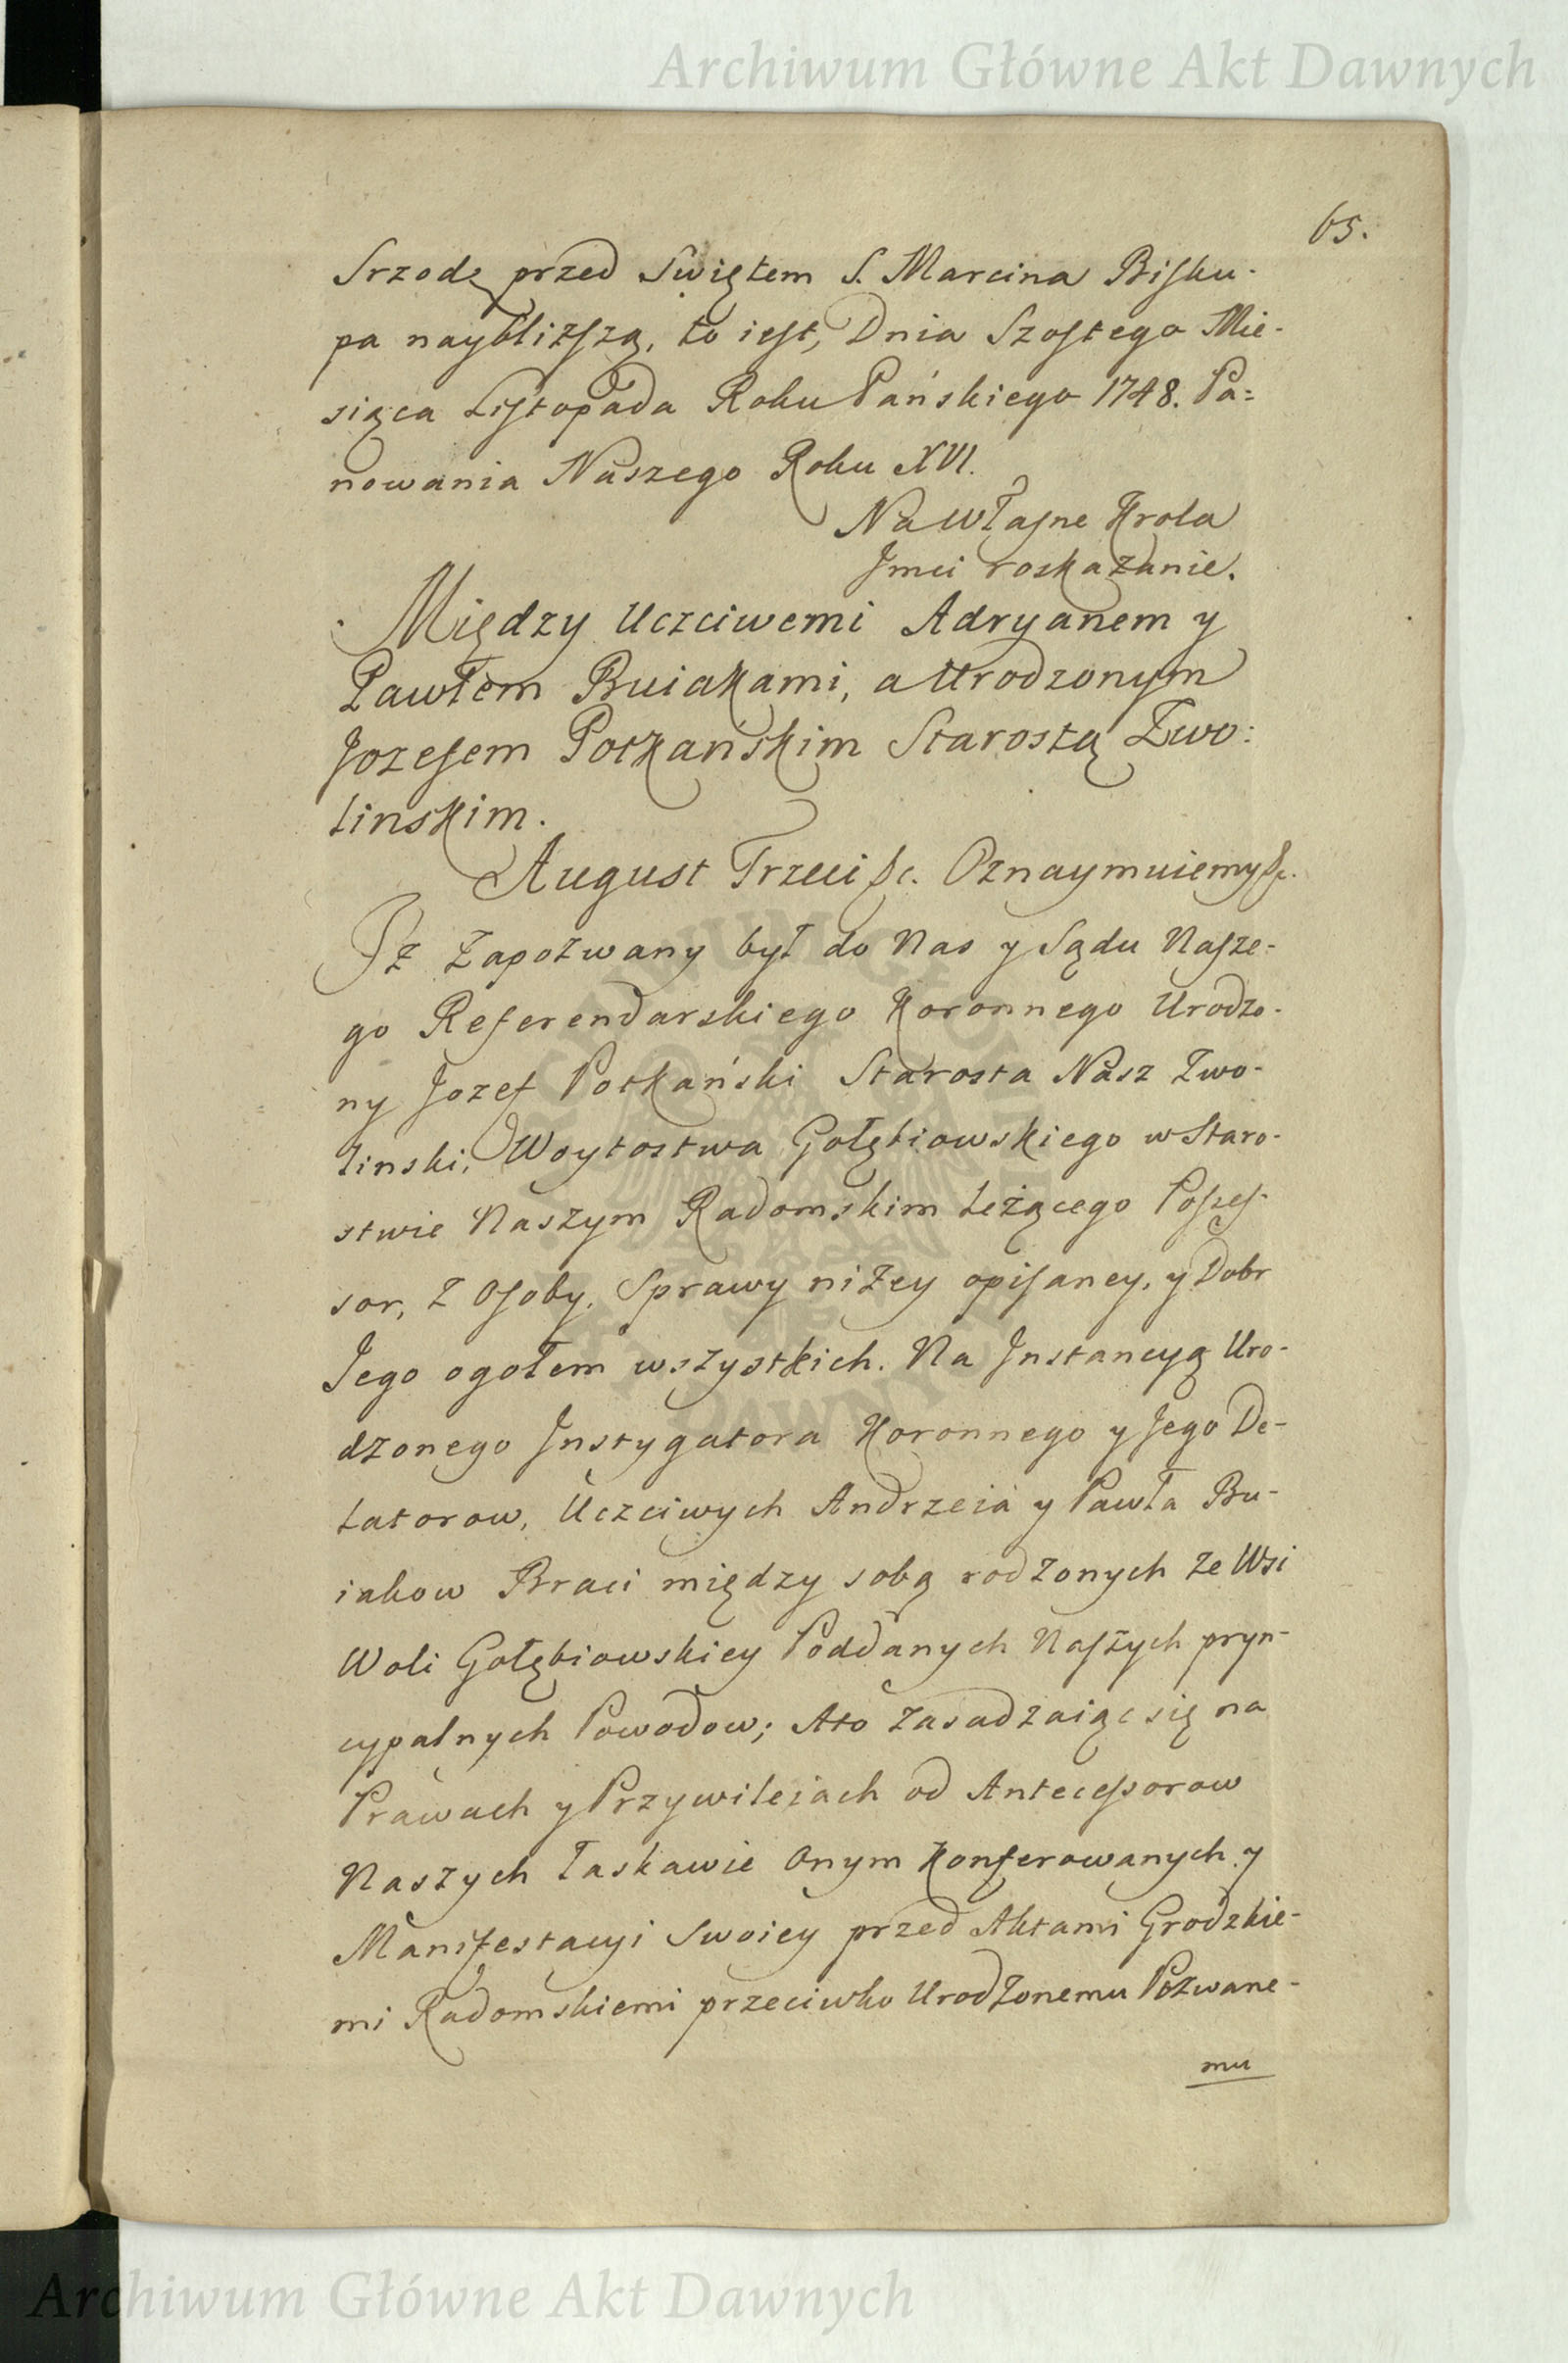 Archiwum Główne Akt Dawnych
65.
Srzodę przed Swiętem S. Marcina Bisku-
pa naybliższą, to iest, Dnia Szostego Mie-
siąca Listopada Roku Pańskiego 1748. Pa=
nowania Naszego Roku XVI.
Na własne Krola
Jmci roskazanie.
Między Uczciwemi Adryanem y
Pawłem Buiakami, a Urodzonym
Jozefem Potkańskim Starostą Zwo:
linskim.
August Trzeci &c. Oznaymuiemy &c.
Iż Zapozwany był do Nas y Sądu Nasze-
go Referendarskiego Koronnego Urodzo-
ny Jozef Potkański Starosta Nasz Zwo-
linski, Woytostwa Gołębiowskiego w Staro-
stwie Naszym Radomskim leżącego Posses-
sor, z Osoby, Sprawy niżey opisaney, y Dobr
Jego ogołem wszystkich. Na Jnstancyą Uro-
dzonego Jnstygatora Koronnego y Jego De-
latorow, Uczciwych Andrzeia y Pawła Bu-
iakow Braci między sobą rodzonych ze Wsi
Woli Gołębiowskiey Poddanych Naszych pryn-
cypalnych Powodow; Ato zasadzaiąc się na
Prawach y Przywileiach od Antecessorow
Naszych łaskawie Onym konferowanych y
Manifestacyi Swoiey przed Aktami Grodzkie-
mi Radomskiemi przeciwko Urodzonemu Pozwane-
mu
Archiwum Główne Akt Dawnych